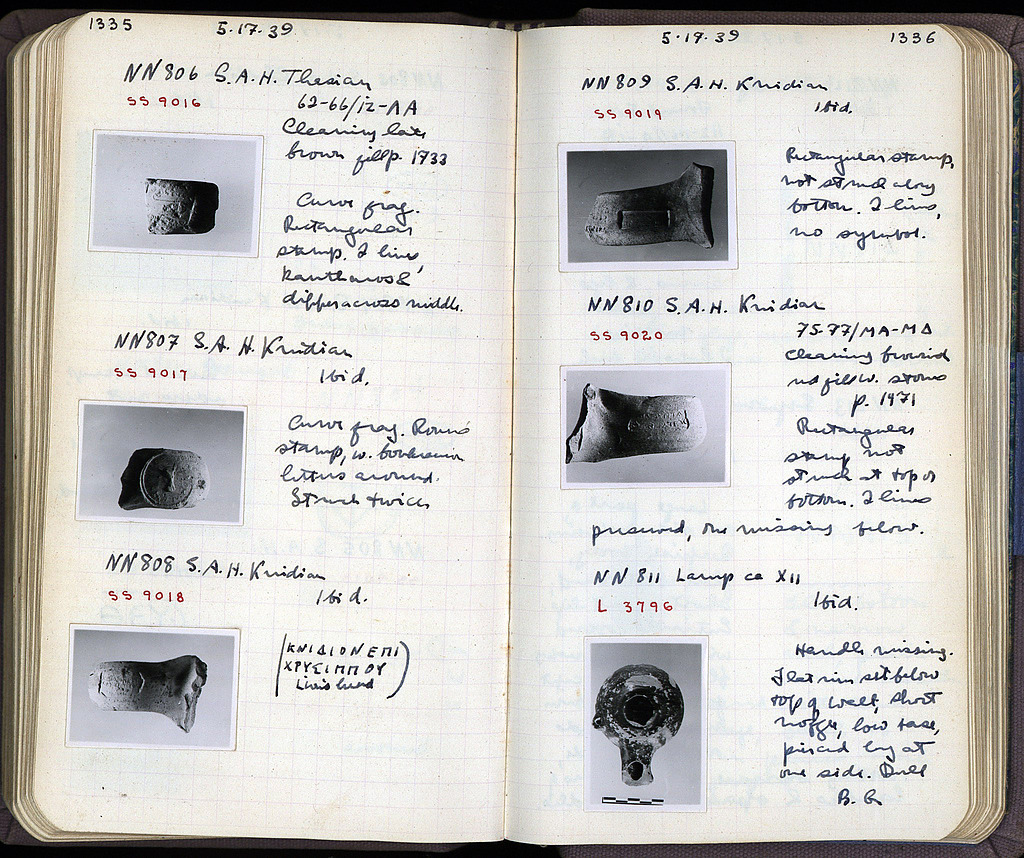 1335
5·17·39
NN806 S.A.H. Thasian
SS 9016
62-66/IZ-ΛΑ
Cleaning late
brown fill p. 1733
Curve frag.
Rectangular
stamp. 2 lines,
kantharos &
dipper across middle.
NN807 S.A.H. Knidian
SS 9017
Ibid.
Curve frag. Round
stamp, w. boukranion
letters around.
Struck twice
NN808 S.A.H. Knidian
SS 9018
Ibid.
(ΚΝΙΔΙΟΝ ΕΠΙ
ΧΡΥΣΙΠΠΟΥ
Lion's head)
5·17·39
1336
NN809 S.A.H. Knidian
SS 9019
Ibid.
Rectangular stamp,
not struck along
bottom. 2 lines,
no symbol.
NN810 S.A.H. Knidian
SS 9020
75-77/ΜΑ-ΜΔ
Cleaning
fill w. stones
p. 1971
Rectangular
stamp not
struck at top or
bottom. 2 lines
preserved, one missing below.
NN 811 Lamp ca XII
L 3796
Ibid.
Handle missing.
Flat rim set below
top of wall, short
nozzle, low base,
pierced lug at
one side. Dull
B. G.